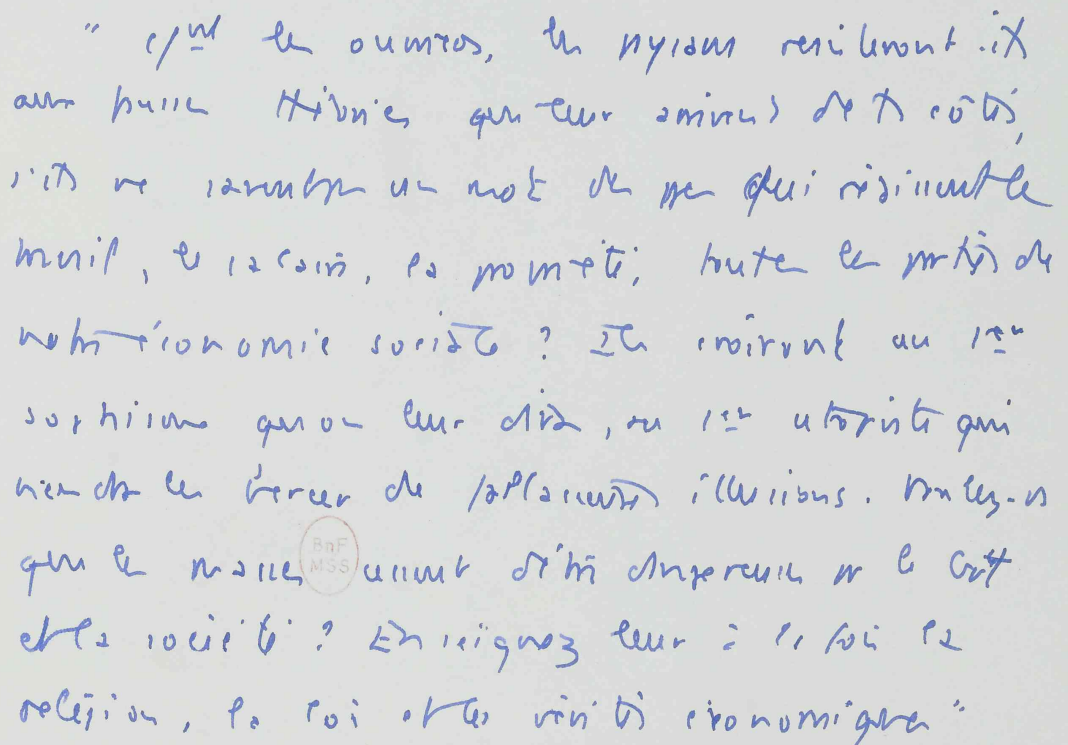 " c/mt les ouvriers, les paysans résisteront-ils
aux fausses théories qui leur arrivent de ts côtés,
s'ils ne savent pas un mot des pes qui régissent le
travail, le salaire, la propriété, toutes les parties de
notre économie sociale ? Ils croiront au 1er
sophisme qu'on leur dira, au 1er utopiste qui
viendra les bercer de séduisantes illusions. Voulez-vs
que les masses cessent d'être dangereuses pr le Gvt
et la société ? Enseignez leur à la fois la
religion, la loi et les vérités économiques "
BnF
MSS